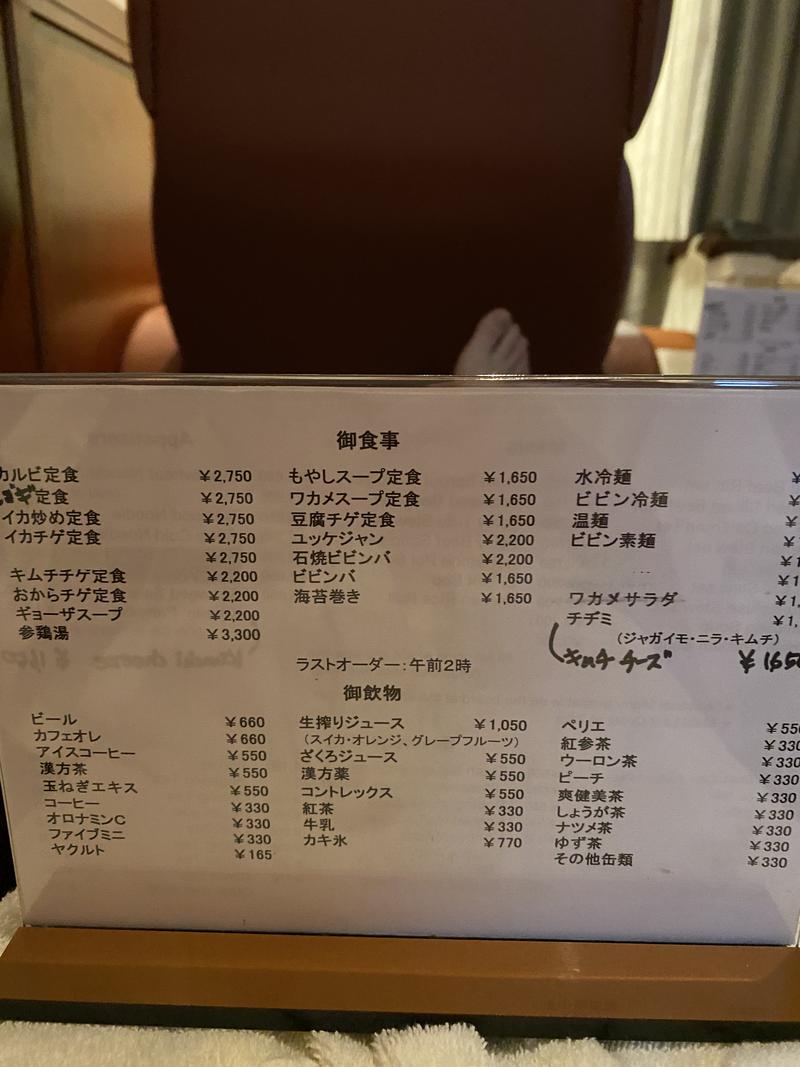 御食事
カルビ定食 ¥2,750
定食 ¥2,750
イカ炒め定食 ¥2,750
イカチゲ定食 ¥2,750
¥2,750
キムチチゲ定食 ¥2,200
おからチゲ定食 ¥2,200
ギョーザスープ ¥2,200
参鶏湯 ¥3,300
もやしスープ定食 ¥1,650
ワカメスープ定食 ¥1,650
豆腐チゲ定食 ¥1,650
ユッケジャン ¥2,200
石焼ビビンバ ¥2,200
ビビンバ ¥1,650
海苔巻き ¥1,650
水冷麺 ¥
ビビン冷麺 ¥
温麺 ¥
ビビン素麺 ¥
¥1
¥1
ワカメサラダ ¥1,
チヂミ ¥1,
(ジャガイモ・ニラ・キムチ)
キムチチーズ ¥1650
ラストオーダー：午前2時
御飲物
ビール ¥660
カフェオレ ¥660
アイスコーヒー ¥550
漢方茶 ¥550
玉ねぎエキス ¥550
コーヒー ¥330
オロナミンC ¥330
ファイブミニ ¥330
ヤクルト ¥165
生搾りジュース ¥1,050
(スイカ・オレンジ、グレープフルーツ)
ざくろジュース ¥550
漢方薬 ¥550
コントレックス ¥550
紅茶 ¥330
牛乳 ¥330
カキ氷 ¥770
ペリエ ¥550
紅参茶 ¥330
ウーロン茶 ¥330
ピーチ ¥330
爽健美茶 ¥330
しょうが茶 ¥330
ナツメ茶 ¥330
ゆず茶 ¥330
その他缶類 ¥330